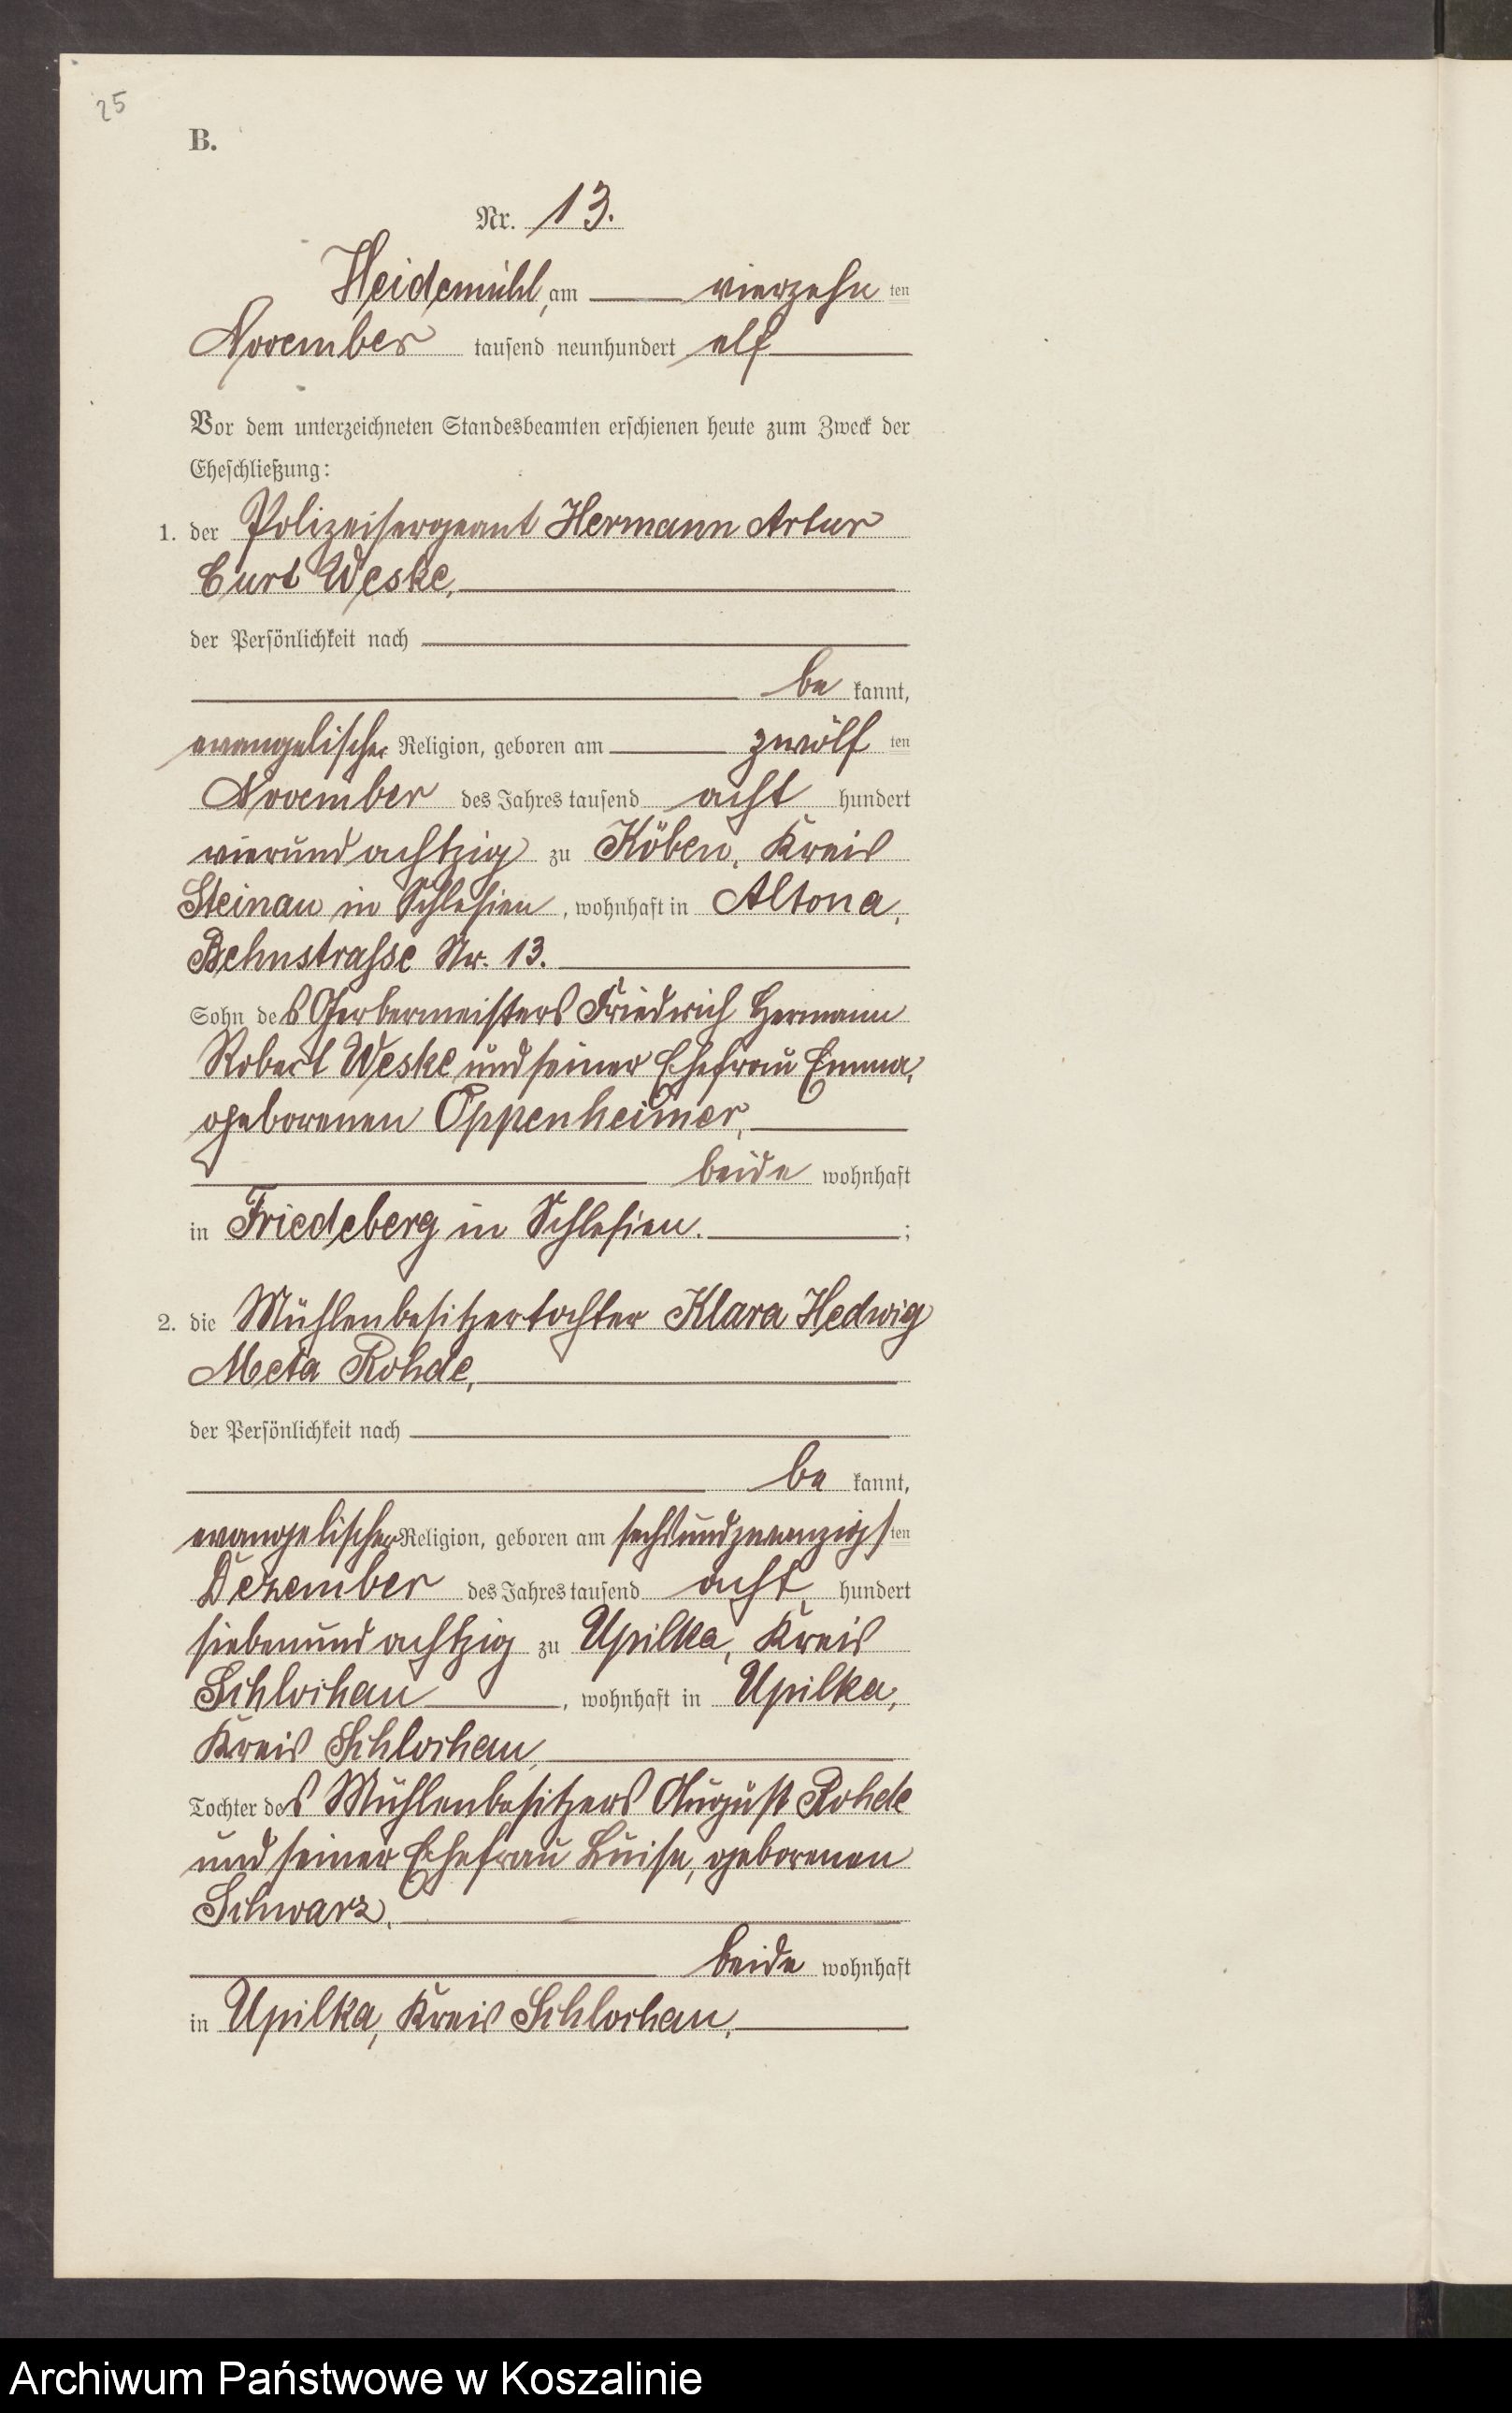 25
B.
Nr. 13.
Heidemühl, am vierzehn ten
November tausend neunhundert elf
Vor dem unterzeichneten Standesbeamten erschienen heute zum Zweck der
Eheschließung:
1. der Polizeisergeant Hermann Artur
Curt Weske,
der Persönlichkeit nach
be kannt,
evangelischer Religion, geboren am zwölf ten
November des Jahres tausend acht hundert
vierundachtzig zu Köben, Kreis
Steinau in Schlesien, wohnhaft in Altona,
Behnstrasse Nr. 13.
Sohn des Gerbermeisters Friedrich Hermann
Robert Weske und seiner Ehefrau Emma,
geborenen Oppenheimer,
beide wohnhaft
in Friedeberg in Schlesien. ;
2. die Mühlenbesitzertochter Klara Hedwig
Meta Rohde,
der Persönlichkeit nach
be kannt,
evangelischer Religion, geboren am sechsundzwanzigs ten
Dezember des Jahres tausend acht hundert
siebenundachtzig zu Upilka, Kreis
Schlochau, wohnhaft in Upilka,
Kreis Schlochau,
Tochter des Mühlenbesitzers August Rohde
und seiner Ehefrau Luise, geborenen
Schwarz,
beide wohnhaft
in Upilka, Kreis Schlochau,
Archiwum Państwowe w Koszalinie